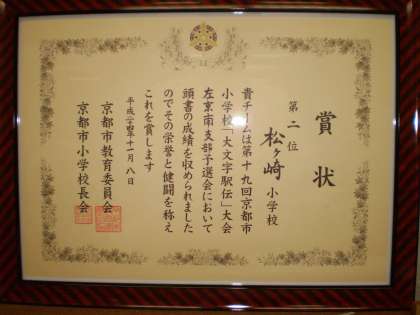 賞状
第二位
松ヶ崎小学校
貴チームは第十九回京都市
小学校「大文字駅伝」大会
左京南支部予選会において
頭書の成績を収められました
のでその栄誉と健闘を称え
これを賞します
平成十一月八日
京都市教育委員会
京都市小学校長会